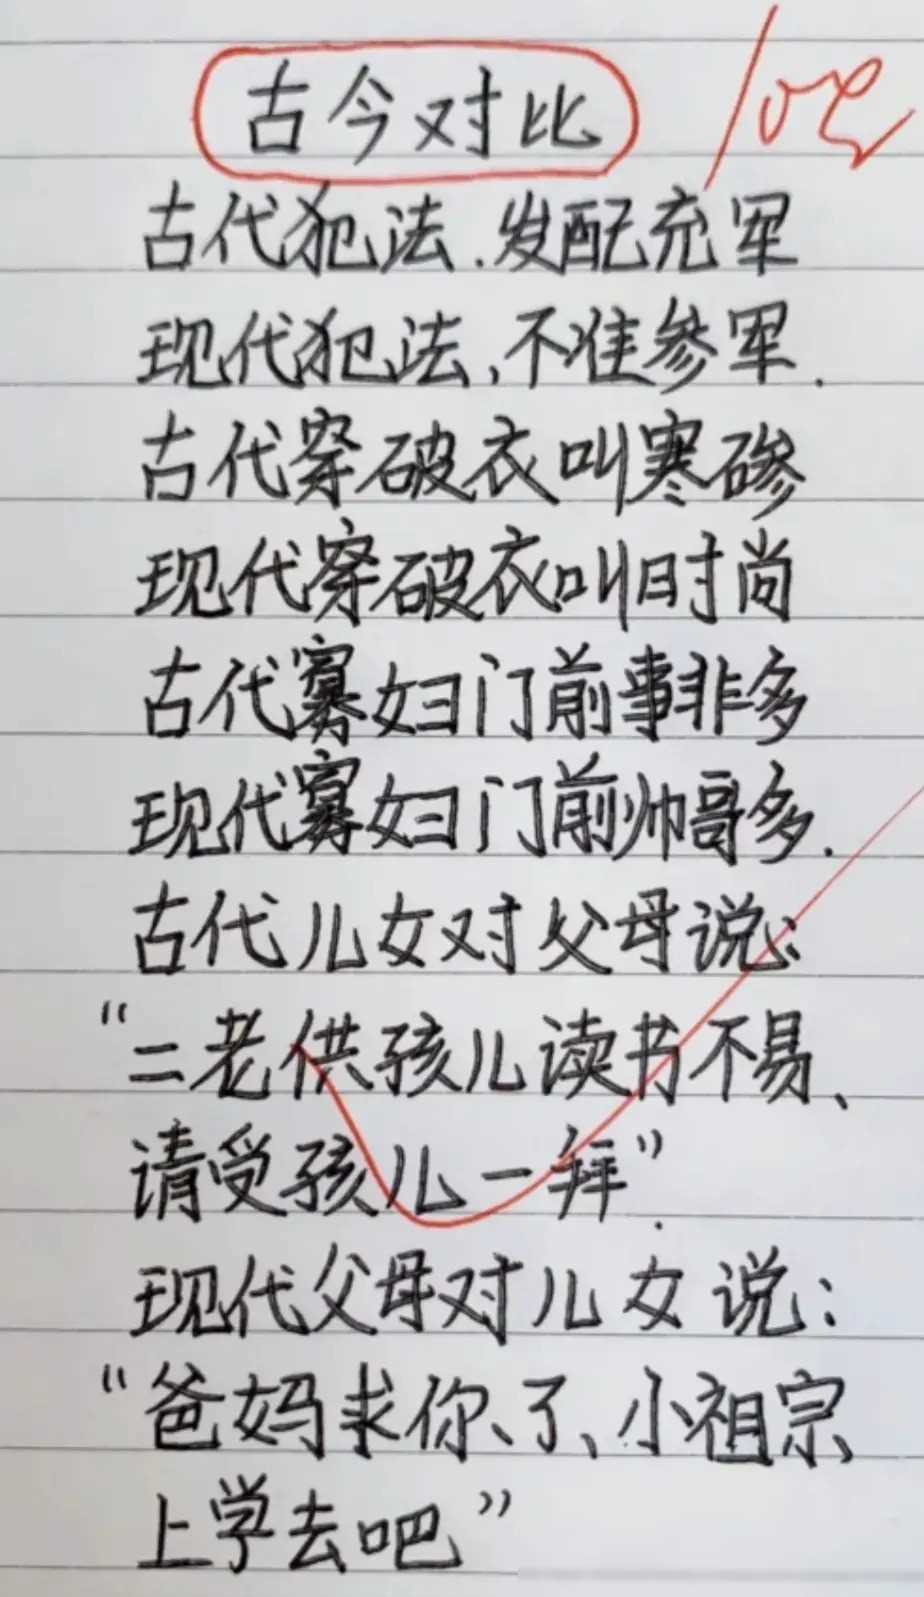 古今对比
古代犯法.发配充军
现代犯法,不准参军.
古代穿破衣叫寒碜
现代穿破衣叫时尚
古代寡妇门前事非多
现代寡妇门前帅哥多.
古代儿女对父母说:
“二老供孩儿读书不易、
请受孩儿一拜”.
现代父母对儿女说:
“爸妈求你、了、小祖宗、
上学去吧”